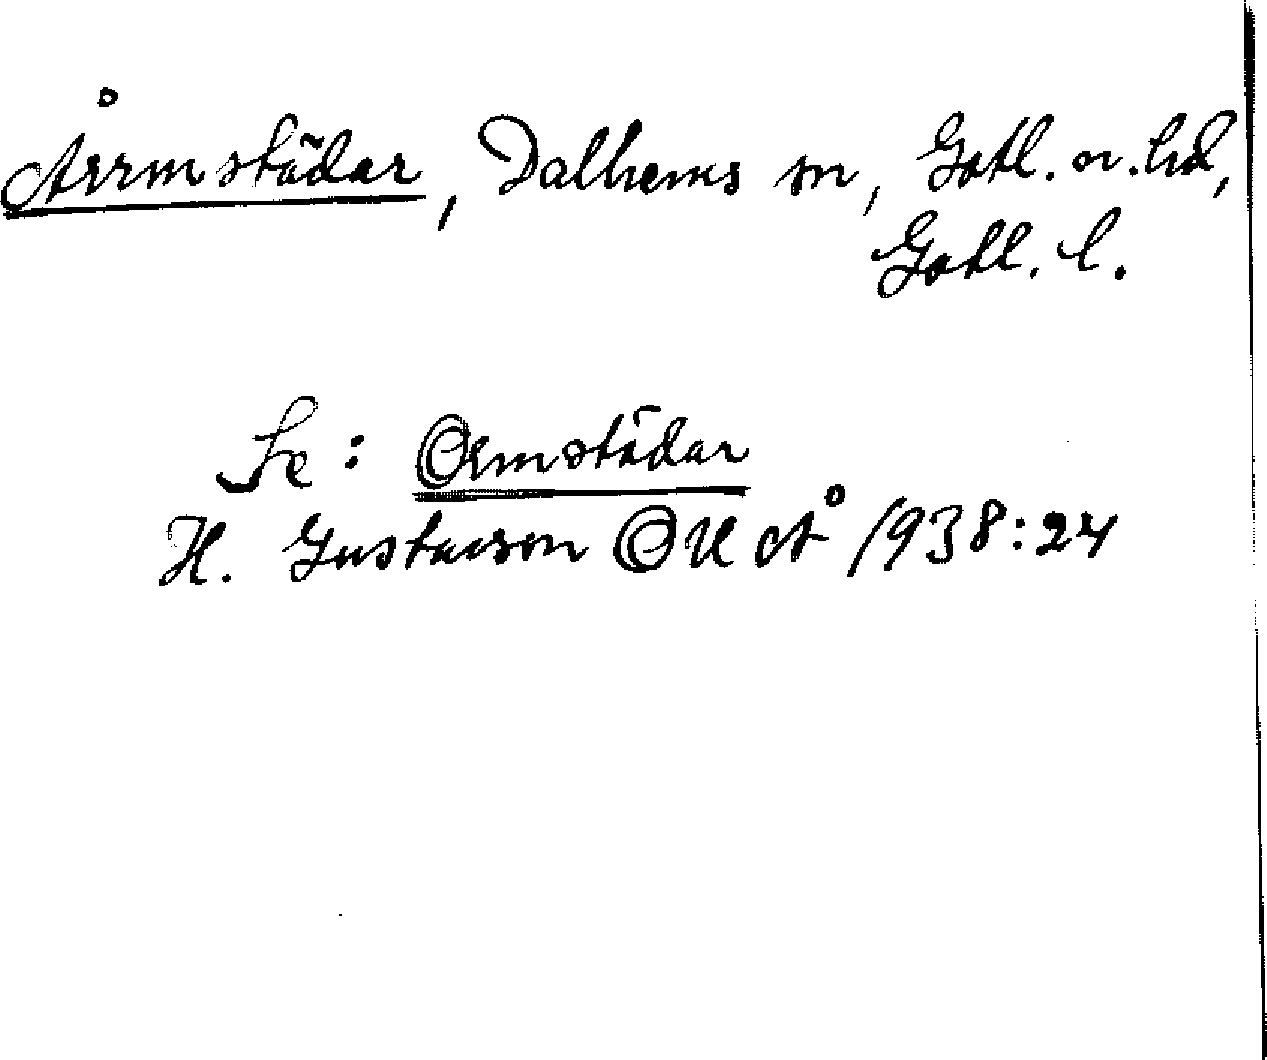 Årrmstädar, Dalhems sn, Gotl. n. hd,
Gotl. l.
Se: Ormstädar
H. Gustavson OUÅ 1938:24